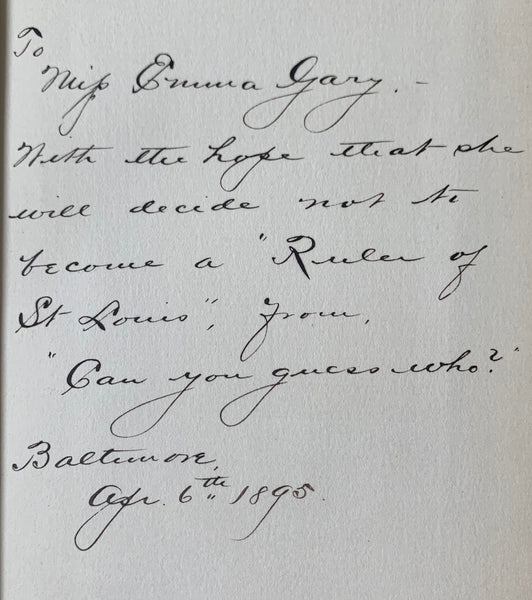 To
Miss Emma Gary. –
With the hope that she
will decide not to
become a "Ruler of
St Louis", from,
"Can you guess who?"
Baltimore,
Apr. 6th 1895.